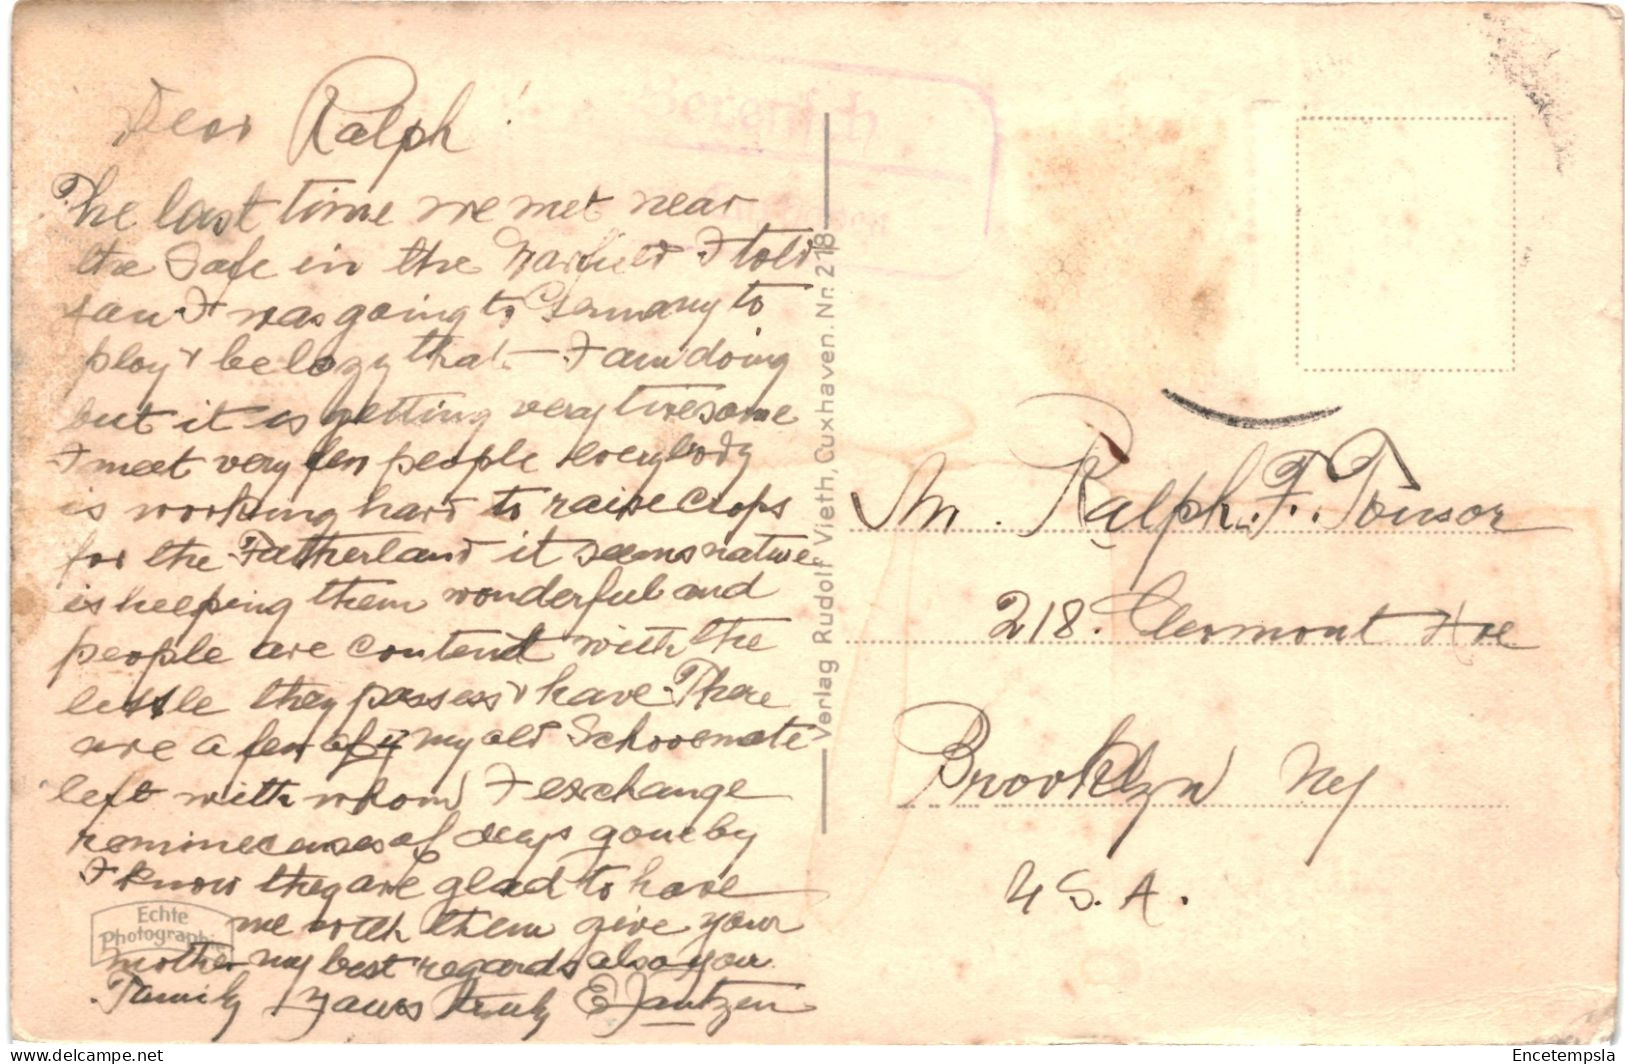 Dear Ralph!
The last time we met near
the Safe in the Garfield I told
you I was going to Germany to
play & be lazy that — I am doing
but it is getting very tiresome
I meet very few people everybody
is working hard to raise crops
for the Fatherland it seems nature
is helping them wonderful and
people are content with the
little they possess & have. There
are a few of my old Schoolmate
left with whom I exchange
reminecenses of days gone by
I know they are glad to have
me with them give your
mother my best regards also your
Family Yours truly E Jantzen
Echte
Photographie
Verlag Rudolf Vieth, Cuxhaven. Nr. 218
Mr. Ralph. F. Tonsor
218. Clermont Ave
Brooklyn NY
U S. A.
Encetempsla